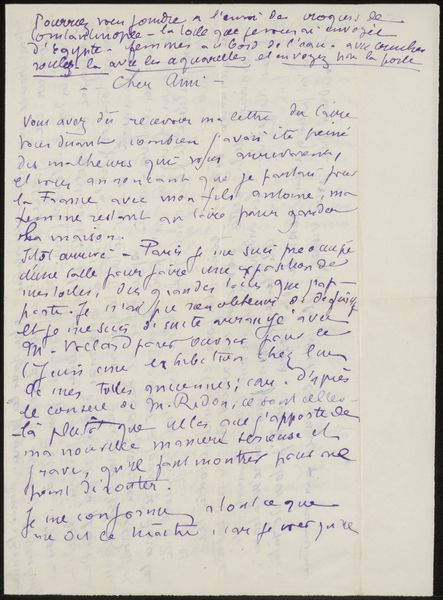 Pourriez vous joindre a l'envoi des croquis de
Constantinople - la toile que je vous ai envoyée
d'Egypte - femmes au bord de l'eau - avec
roulez la avec les aquarelles et envoyez par la poste
Cher Ami -
Vous avez dû recevoir ma lettre du Caire
vous disant combien j'avais été peiné
des malheurs qui vous
et vous annonçant que je partais pour
la France avec mon fils antoine, ma
femme restant au Caire pour garder
la maison.
Sitôt arrivé - Paris je me suis préoccupé
d'une salle pour faire une exposition de
mes toiles, des grandes toiles que j'ap-
porte. Je n'ai pu rien obtenir de
et je me suis de suite arrangé avec
M. Vollard pour ouvrir pour le
1 Juin une exhibition chez lui
de mes toiles anciennes; car d'après
le conseil de M. Redon, ce sont celles-
-là plutôt que celles que j'apporte de
ma nouvelle manière sérieuse et
grave, qu'il faut montrer pour ne
point dérouter.
Je me conforme a tout ce que
me dit ce maître, car je